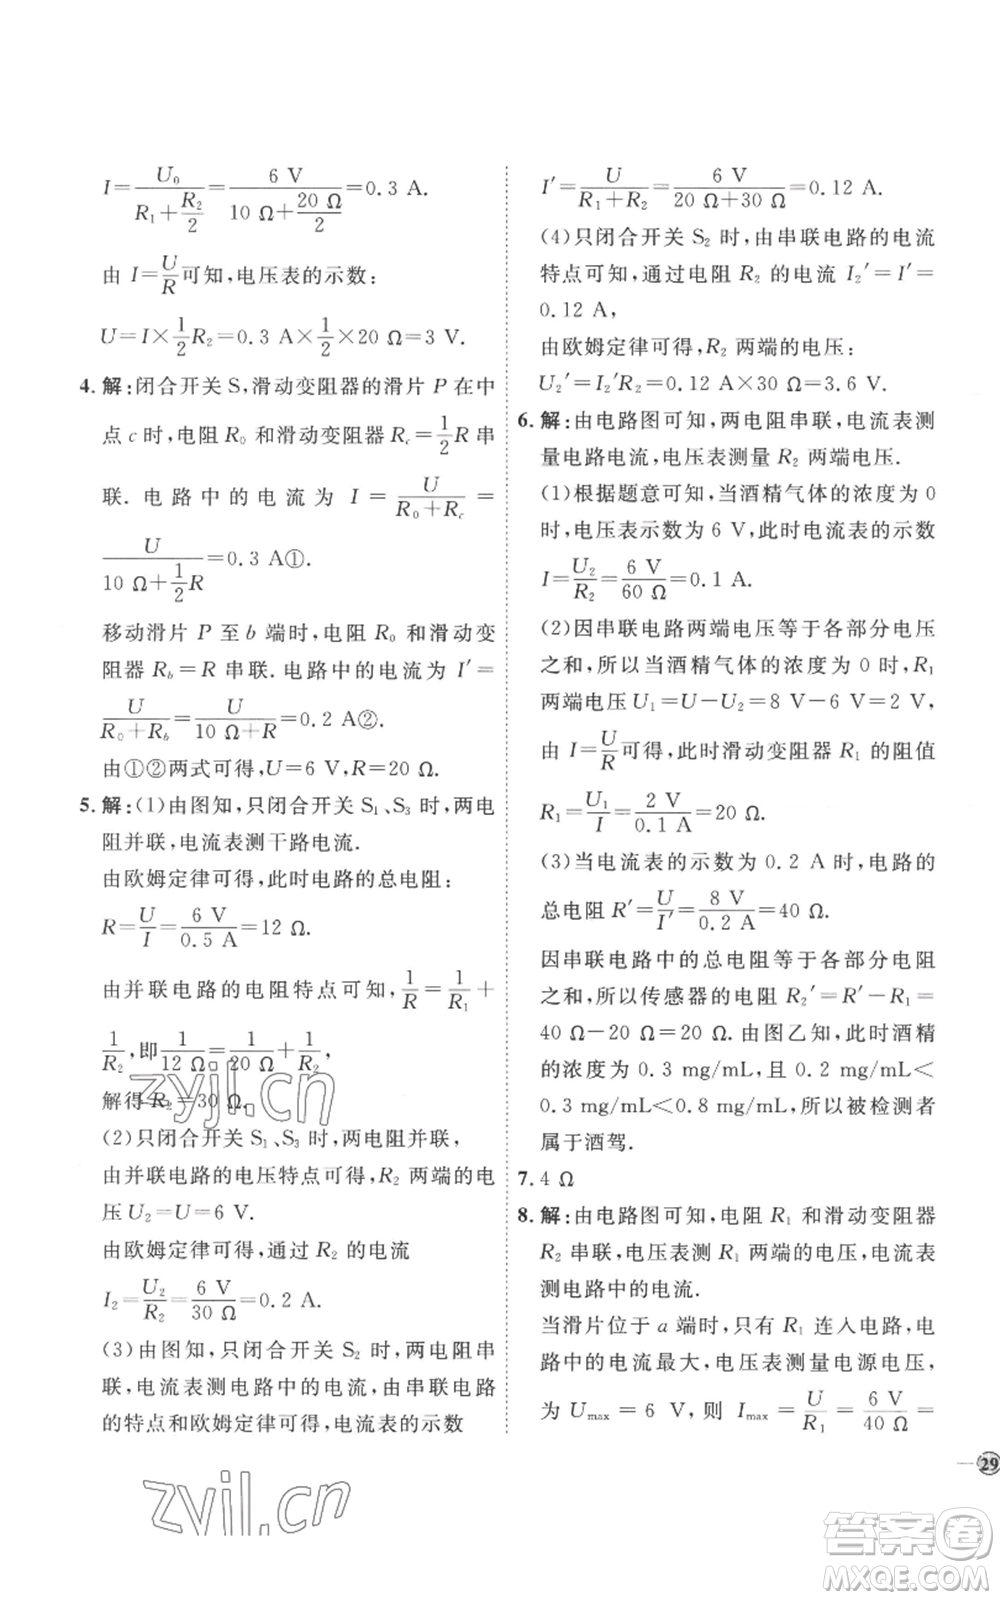 I=U₀/(R₁+R₂/2)=6 V/(10 Ω+20 Ω/2)=0.3 A.
由 I=U/R可知,电压表的示数:
U=I×1/2R₂=0.3 A×1/2×20 Ω=3 V.
4. 解:闭合开关 S,滑动变阻器的滑片 P 在中
点 c 时,电阻 R₀ 和滑动变阻器 R_c=1/2R 串
联. 电路中的电流为 I=U/(R₀+R_c)=
U/(10 Ω+1/2R)=0.3 A①.
移动滑片 P 至 b 端时,电阻 R₀ 和滑动变
阻器 R_b=R 串联.电路中的电流为 I′=
U/(R₀+R_b)=U/(10 Ω+R)=0.2 A②.
由①②两式可得,U=6 V,R=20 Ω.
5. 解:(1)由图知,只闭合开关 S₁、S₃ 时,两电
阻并联,电流表测干路电流.
由欧姆定律可得,此时电路的总电阻:
R=U/I=6 V/0.5 A=12 Ω.
由并联电路的电阻特点可知,1/R=1/R₁+
1/R₂,即1/12 Ω=1/20 Ω+1/R₂,
解得 R₂=30 Ω.
(2)只闭合开关 S₁、S₃ 时,两电阻并联,
由并联电路的电压特点可得,R₂ 两端的电
压 U₂=U=6 V.
由欧姆定律可得,通过 R₂ 的电流
I₂=U₂/R₂=6 V/30 Ω=0.2 A.
(3)由图知,只闭合开关 S₂ 时,两电阻串
联,电流表测电路中的电流,由串联电路
的特点和欧姆定律可得,电流表的示数
I′=U/(R₁+R₂)=6 V/(20 Ω+30 Ω)=0.12 A.
(4)只闭合开关 S₂ 时,由串联电路的电流
特点可知,通过电阻 R₂ 的电流 I₂′=I′=
0.12 A,
由欧姆定律可得,R₂ 两端的电压:
U₂′=I₂′R₂=0.12 A×30 Ω=3.6 V.
6. 解:由电路图可知,两电阻串联,电流表测
量电路电流,电压表测量 R₂ 两端电压.
(1)根据题意可知,当酒精气体的浓度为 0
时,电压表示数为 6 V,此时电流表的示数
I=U₂/R₂=6 V/60 Ω=0.1 A.
(2)因串联电路两端电压等于各部分电压
之和,所以当酒精气体的浓度为 0 时,R₁
两端电压 U₁=U−U₂=8 V−6 V=2 V,
由 I=U/R可得,此时滑动变阻器 R₁ 的阻值
R₁=U₁/I=2 V/0.1 A=20 Ω.
(3)当电流表的示数为 0.2 A 时,电路的
总电阻 R′=U/I′=8 V/0.2 A=40 Ω.
因串联电路中的总电阻等于各部分电阻
之和,所以传感器的电阻 R₂′=R′−R₁=
40 Ω−20 Ω=20 Ω. 由图乙知,此时酒精
的浓度为 0.3 mg/mL,且 0.2 mg/mL<
0.3 mg/mL<0.8 mg/mL,所以被检测者
属于酒驾.
7. 4 Ω
8. 解:由电路图可知,电阻 R₁ 和滑动变阻器
R₂ 串联,电压表测 R₁ 两端的电压,电流表
测电路中的电流.
当滑片位于 a 端时,只有 R₁ 连入电路,电
路中的电流最大,电压表测量电源电压,
为 U_max=6 V,则 I_max=U/R₁=6 V/40 Ω=
29
zyjl.cn
zyjl.cn
答案卷
MXQE.COM